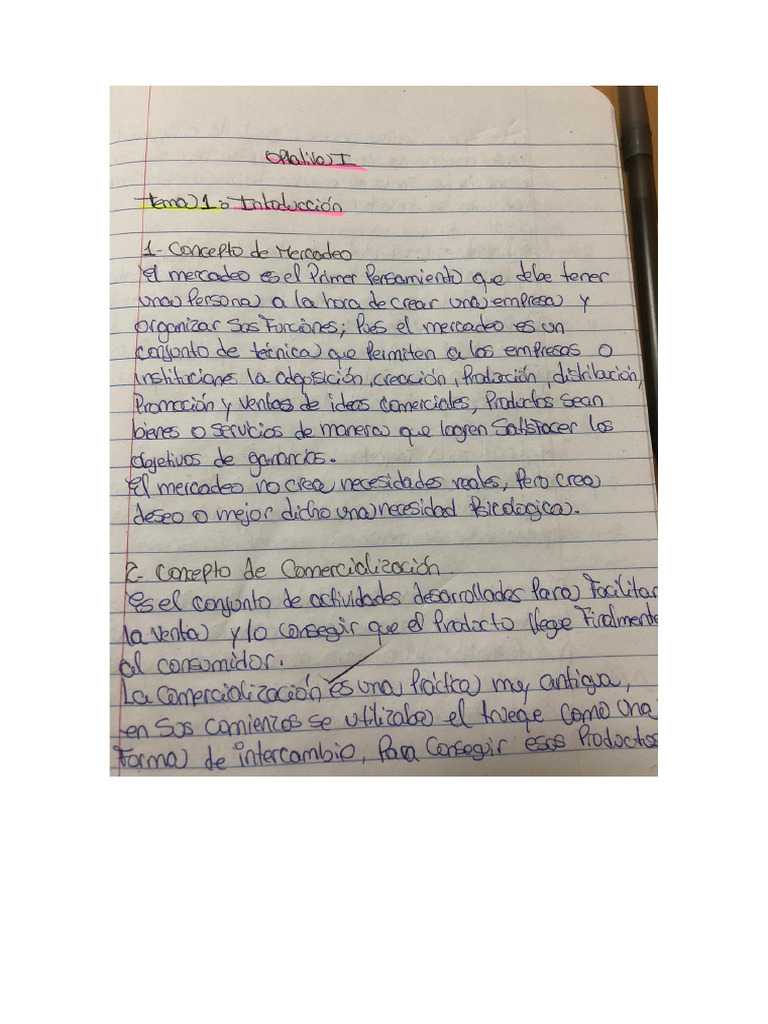 Optativa I
Tema 1: Intoducción
1- Concepto de Mercadeo
El mercadeo es el Primer Pensamiento que debe tener
una Persona a la hora de crear una empresa y
organizar sus Funciones; Pues el mercadeo es un
conjunto de técnica que Permiten a las empresas o
instituciones la adqosición, creación, Producción, distribución,
Promoción y ventas de ideas comerciales, Productos sean
bienes o servicios de manera que logren Satisfacer los
objetivos de ganancias.
El mercadeo no crea necesidades reales, Pero crea
deseo o mejor dicho una necesidad Psicologica.
2- Concepto de Comercialización
es el conjunto de actividades desarrolladas Para Facilitar
la venta y/o conseguir que el Producto llegue Finalmente
al consumidor.
La Comercialización es una Práctica muy antigua,
en Sus comienzos se utilizaba el truege como una
Forma de intercambio, Para Conseguir esos Productos